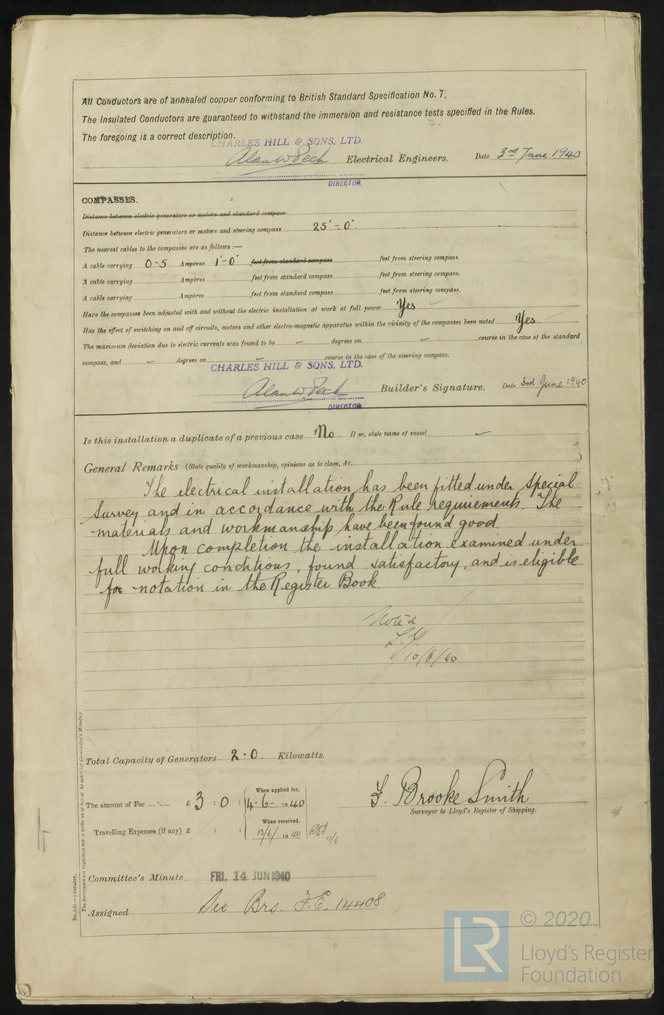 All Conductors are of annealed copper conforming to British Standard Specification No. 7.
The Insulated Conductors are guaranteed to withstand the immersion and resistance tests specified in the Rules.
The foregoing is a correct description.
CHARLES HILL & SONS, LTD.
Alan W Peck Electrical Engineers. Date 3rd June 1940
DIRECTOR
COMPASSES.
Distance between electric generators or motors and standard compass
Distance between electric generators or motors and steering compass 25'-0".
The nearest cables to the compasses are as follows:—
A cable carrying 0.5 Ampères 1'-0" feet from standard compass feet from steering compass.
A cable carrying Ampères feet from standard compass feet from steering compass.
A cable carrying Ampères feet from standard compass feet from steering compass.
Have the compasses been adjusted with and without the electric installation at work at full power Yes
Has the effect of switching on and off circuits, motors and other electro-magnetic apparatus within the vicinity of the compasses been noted Yes
The maximum deviation due to electric currents was found to be degrees on course in the case of the standard
compass, and degrees on course in the case of the steering compass.
CHARLES HILL & SONS, LTD.
Alan W Peck Builder's Signature. Date 3rd June 1940
DIRECTOR
Is this installation a duplicate of a previous case No If so, state name of vessel
General Remarks (State quality of workmanship, opinions as to class, &c.
The electrical installation has been fitted under special
Survey and in accordance with the Rule requirements. The
materials and workmanship have been found good.
Upon completion the installation examined under
full working conditions, found satisfactory, and is eligible
for notation in the Register Book.
Noted
10/6/40
Total Capacity of Generators 2.0 Kilowatts.
When applied for,
The amount of Fee ... £ 3 : 0 : 4-6-1940
F. Brooke Smith
Surveyor to Lloyd's Register of Shipping.
When received.
Travelling Expenses (if any) £ : : 13/6/1940
Committee's Minute FRI. 14 JUN 1940
Assigned See Brs. F.E. 14408
LR © 2020
Lloyd's Register
Foundation